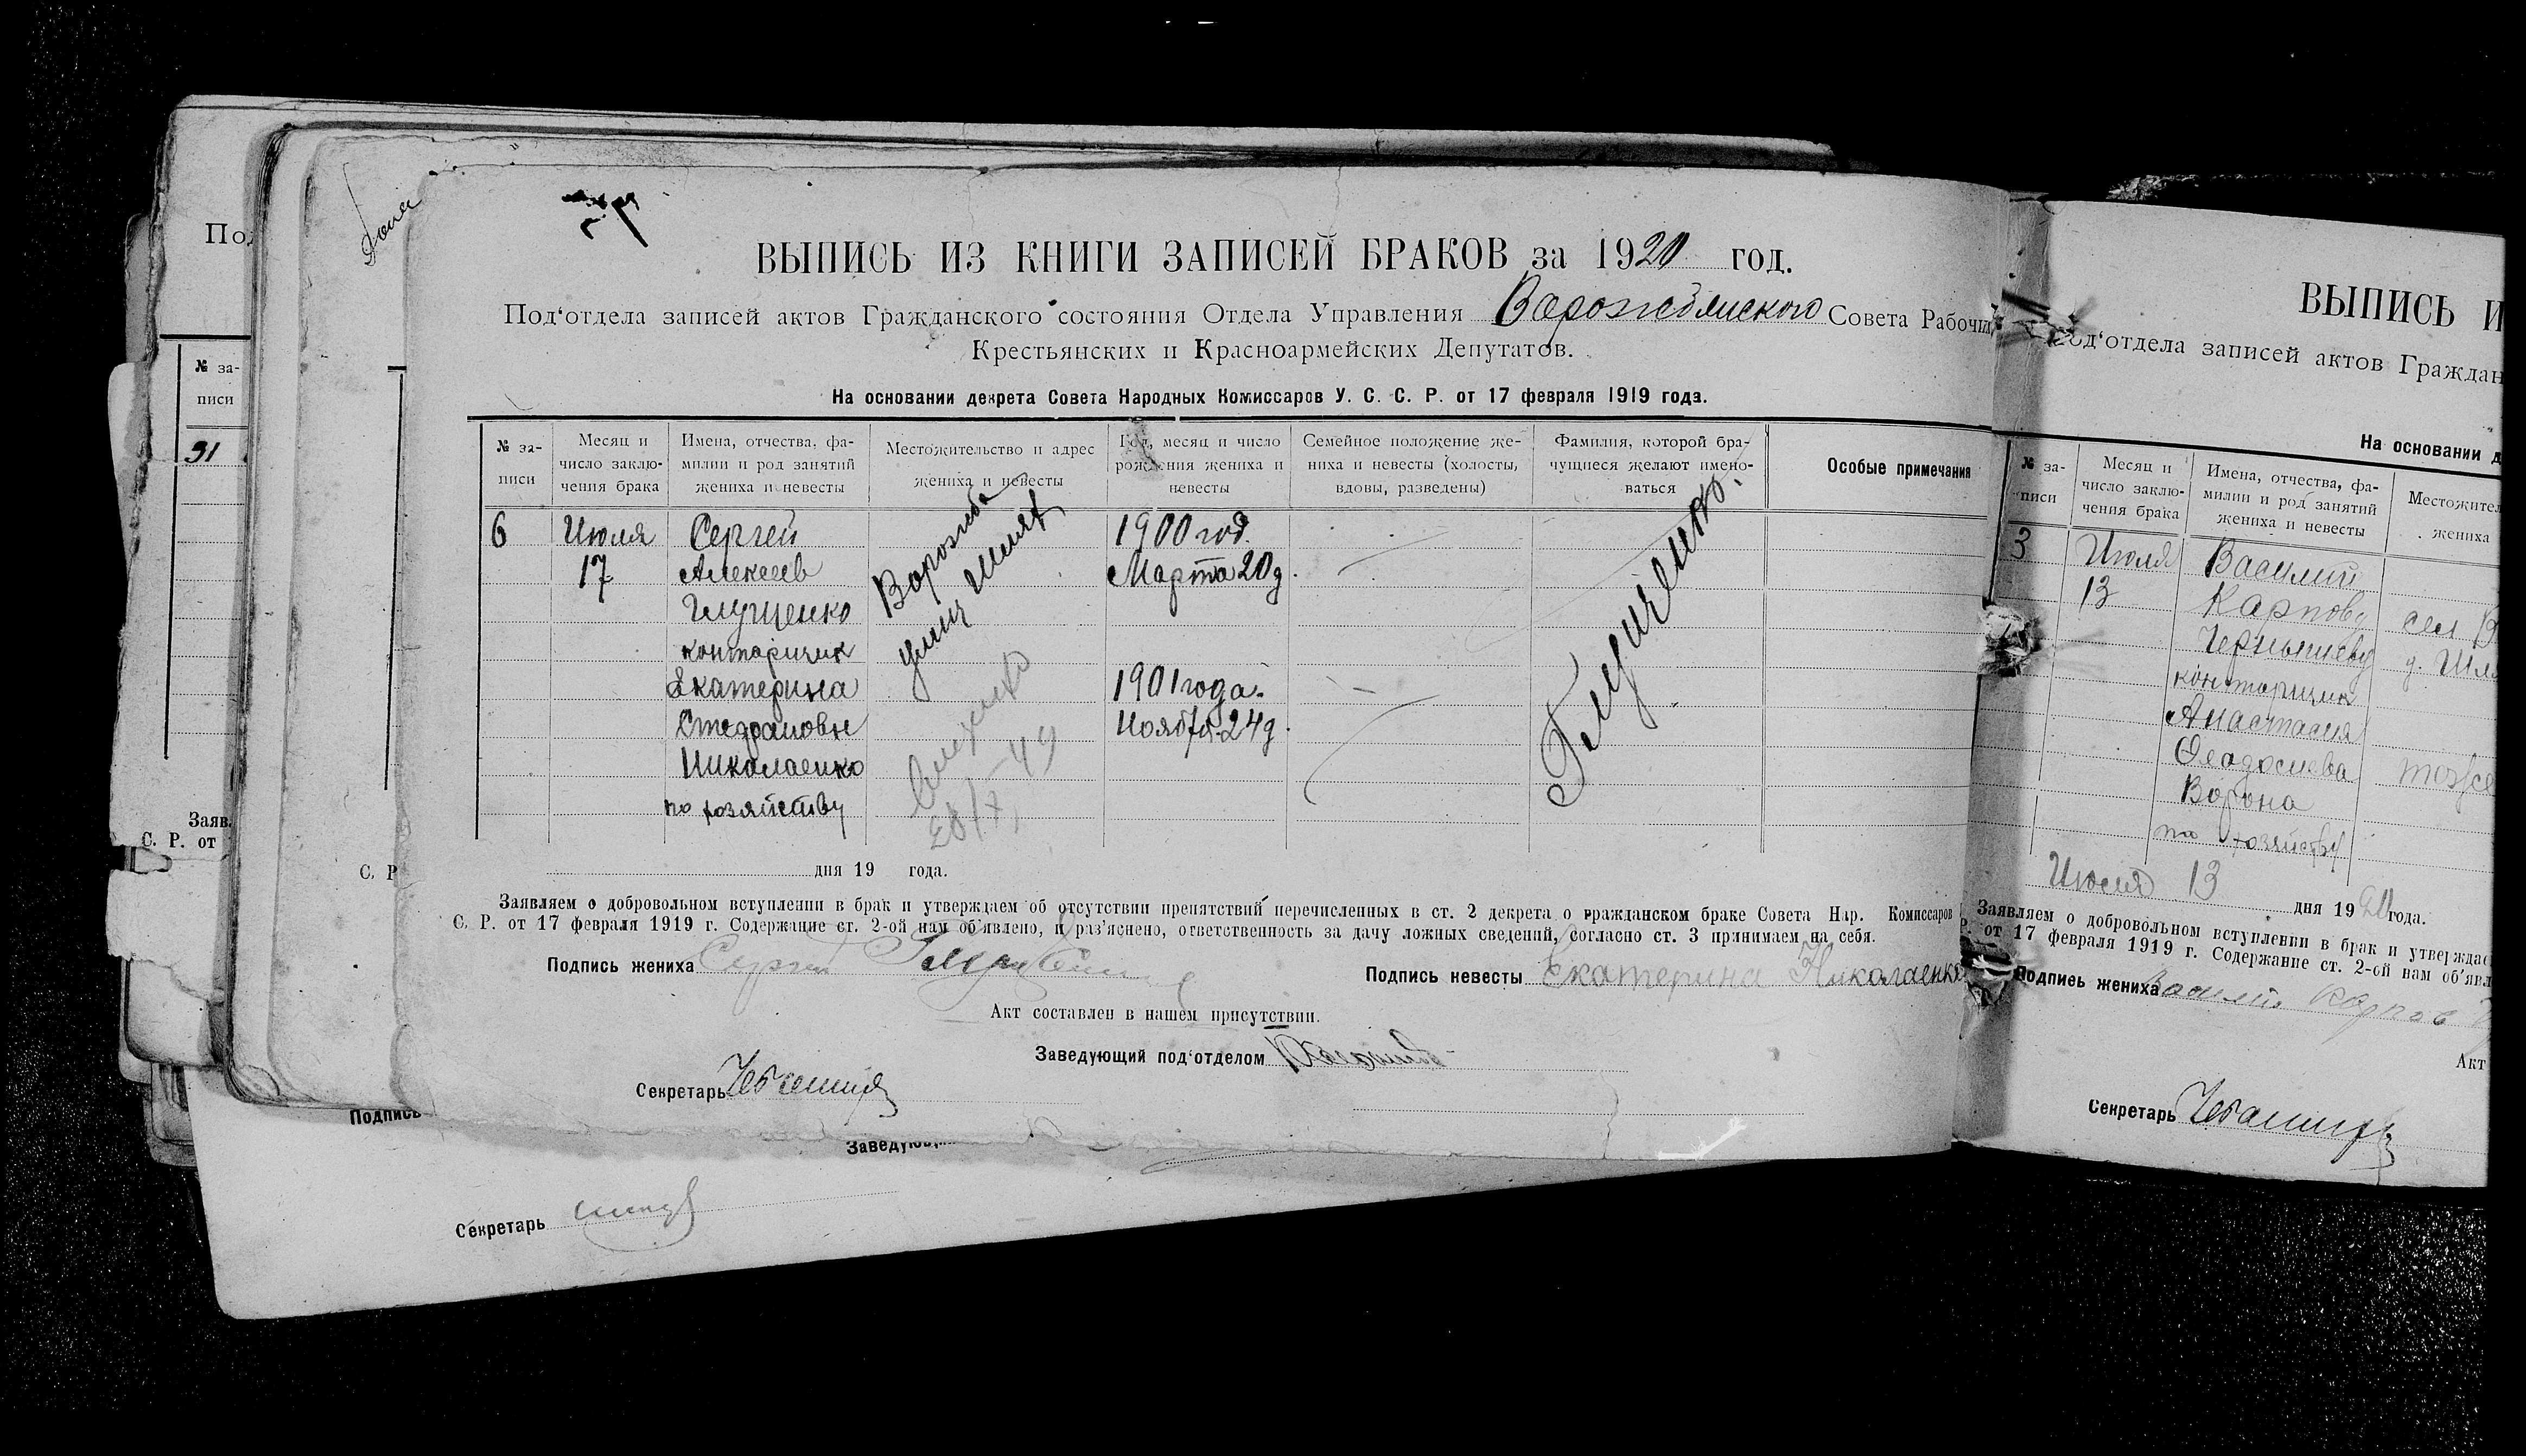 ВЫПИСЬ ИЗ КНИГИ ЗАПИСЕЙ БРАКОВ за 1920 год.
Под‘отдела записей актов Гражданского состояния Отдела Управления Ворожбянского Совета Рабочих,
Крестьянских и Красноармейских Депутатов.
На основании декрета Совета Народных Комиссаров У. С. С. Р. от 17 февраля 1919 года.
№ за-
писи
Месяц и
число заклю-
чения брака
Имена, отчества, фа-
милии и род занятий
жениха и невесты
Местожительство и адрес
жениха и невесты
Год, месяц и число
рождения жениха и
невесты
Семейное положение же-
ниха и невесты (холосты,
вдовы, разведены)
Фамилия, которой бра-
чущиеся желают имено-
ваться
Особые примечания
6
Июля
17
Сергей
Алексеев
Глущенко
конторщик
Екатерина
Стефановн
Николаенко
по хозяйству
Ворожба
улиц Шлях
28/X-49
1900 год.
Марта 20 д.
1901 года.
Ноября 24 д.
Глущенко.
дня 19 года.
Заявляем о добровольном вступлении в брак и утверждаем об отсутствии препятствий перечисленных в ст. 2 декрета о гражданском браке Совета Нар. Комиссаров
С. Р. от 17 февраля 1919 г. Содержание ст. 2-ой нам об‘явлено, и раз‘яснено, ответственность за дачу ложных сведений, согласно ст. 3 принимаем на себя.
Подпись жениха Сергей
Подпись невесты Екатерина Николаенко
Акт составлен в нашем присутствии.
Заведующий под‘отделом
Секретарь
Под
№ за-
писи
31
Заяв.
С. Р. от
С. Р
Подпись
Заведующ
Секретарь
ВЫПИСЬ И
Под‘отдела записей актов Граждан
На основании д
№ за-
писи
Месяц и
число заклю-
чения брака
Имена, отчества, фа-
милии и род занятий
жениха и невесты
Местожител
жениха
3
Июля
13
Василий
Карпову
Чернышеву
конторщик
Анастасия
Феодосиева
Ворона
по хозяйству
сел В
у. Шля
тоже
Июля 13 дня 1920 года.
Заявляем о добровольном вступлении в брак и утверждае
Р. от 17 февраля 1919 г. Содержание ст. 2-ой нам об‘явл
Подпись жениха Василий Карпов
Акт
Секретарь